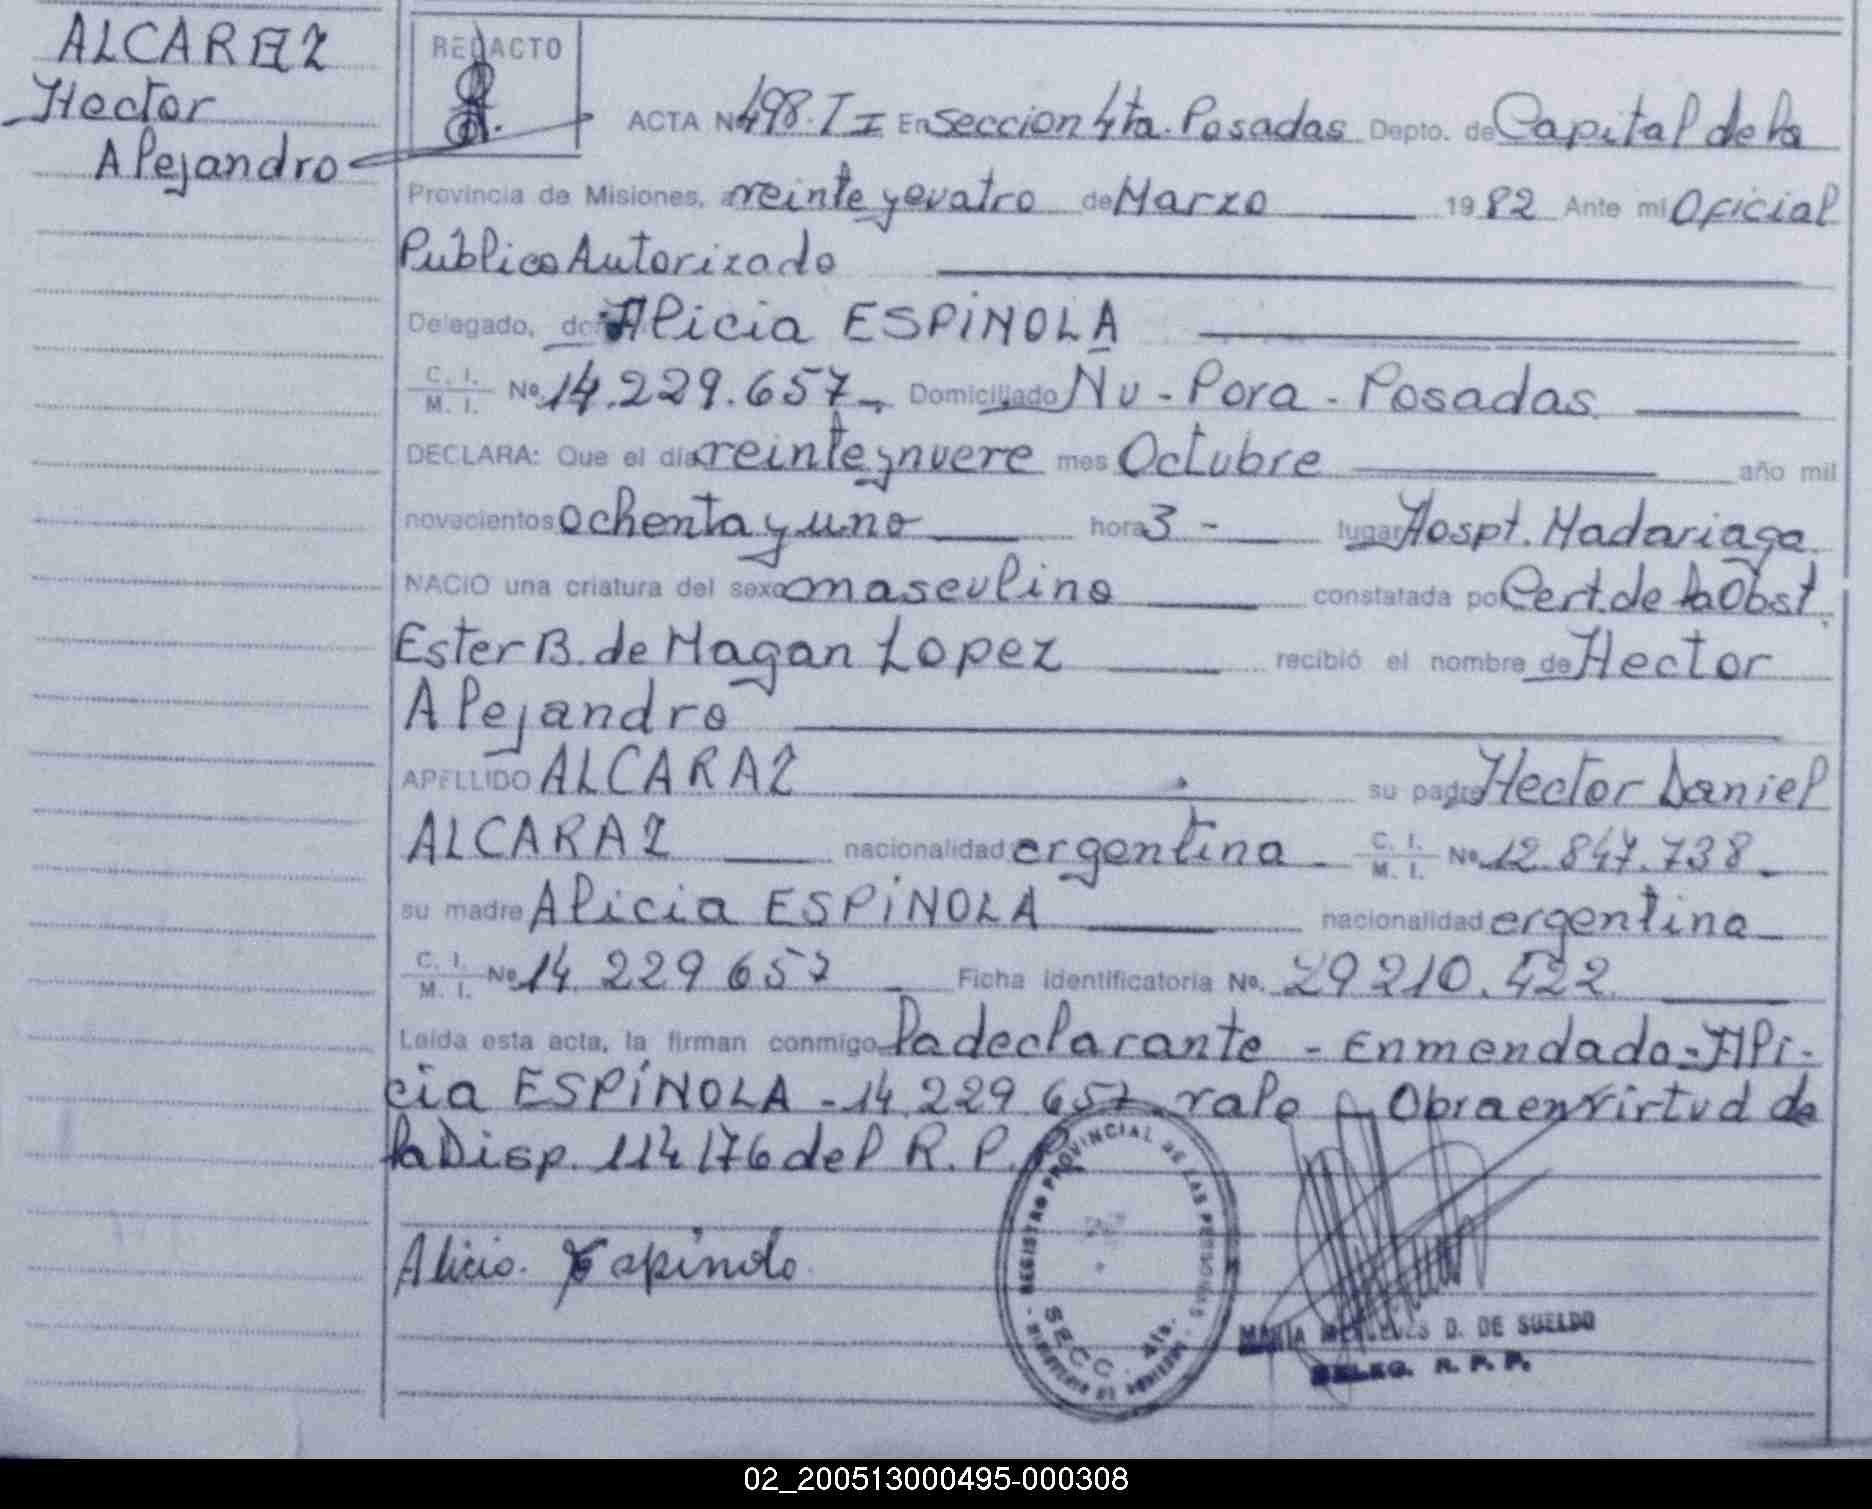 ALCARAZ
Hector
Alejandro
REDACTO
ACTA Nº 498. T I En Seccion 4ta. Posadas Depto. de Capital de la
Provincia de Misiones, a veinte y cuatro de Marzo 1982 Ante mi Oficial
Publico Autorizado
Delegado, Alicia ESPÍNOLA
C. I. M. I. Nº 14.229.657 Domiciliado Ñu-Pora-Posadas
DECLARA: Que el día veinte y nueve mes Octubre año mil
novecientos ochenta y uno hora 3 - lugar Hospt. Madariaga
NACIO una criatura del sexo masculino constatada por Cert. de la Obst.
Ester B. de Magan Lopez recibió el nombre de Hector
Alejandro
APELLIDO ALCARAZ su padre Hector Daniel
ALCARAZ nacionalidad argentina C. I. M. I. Nº 12.847.738
su madre Alicia ESPÍNOLA nacionalidad argentina
C. I. M. I. Nº 14 229 657 Ficha identificatoria Nº. 29 210.422
Leída esta acta, la firman conmigo la declarante - Enmendado - Ali-
cia ESPÍNOLA - 14.229 657. vale Obra en virtud de
la Disp. 114/76 del R. P. P.
Alicia Espinola
REGISTRO PROVINCIAL DE LAS PERSONAS
SECC. 4ta.
MARIA MERCEDES D. DE SUELDO
DELEG. R. P. P.
02_200513000495-000308